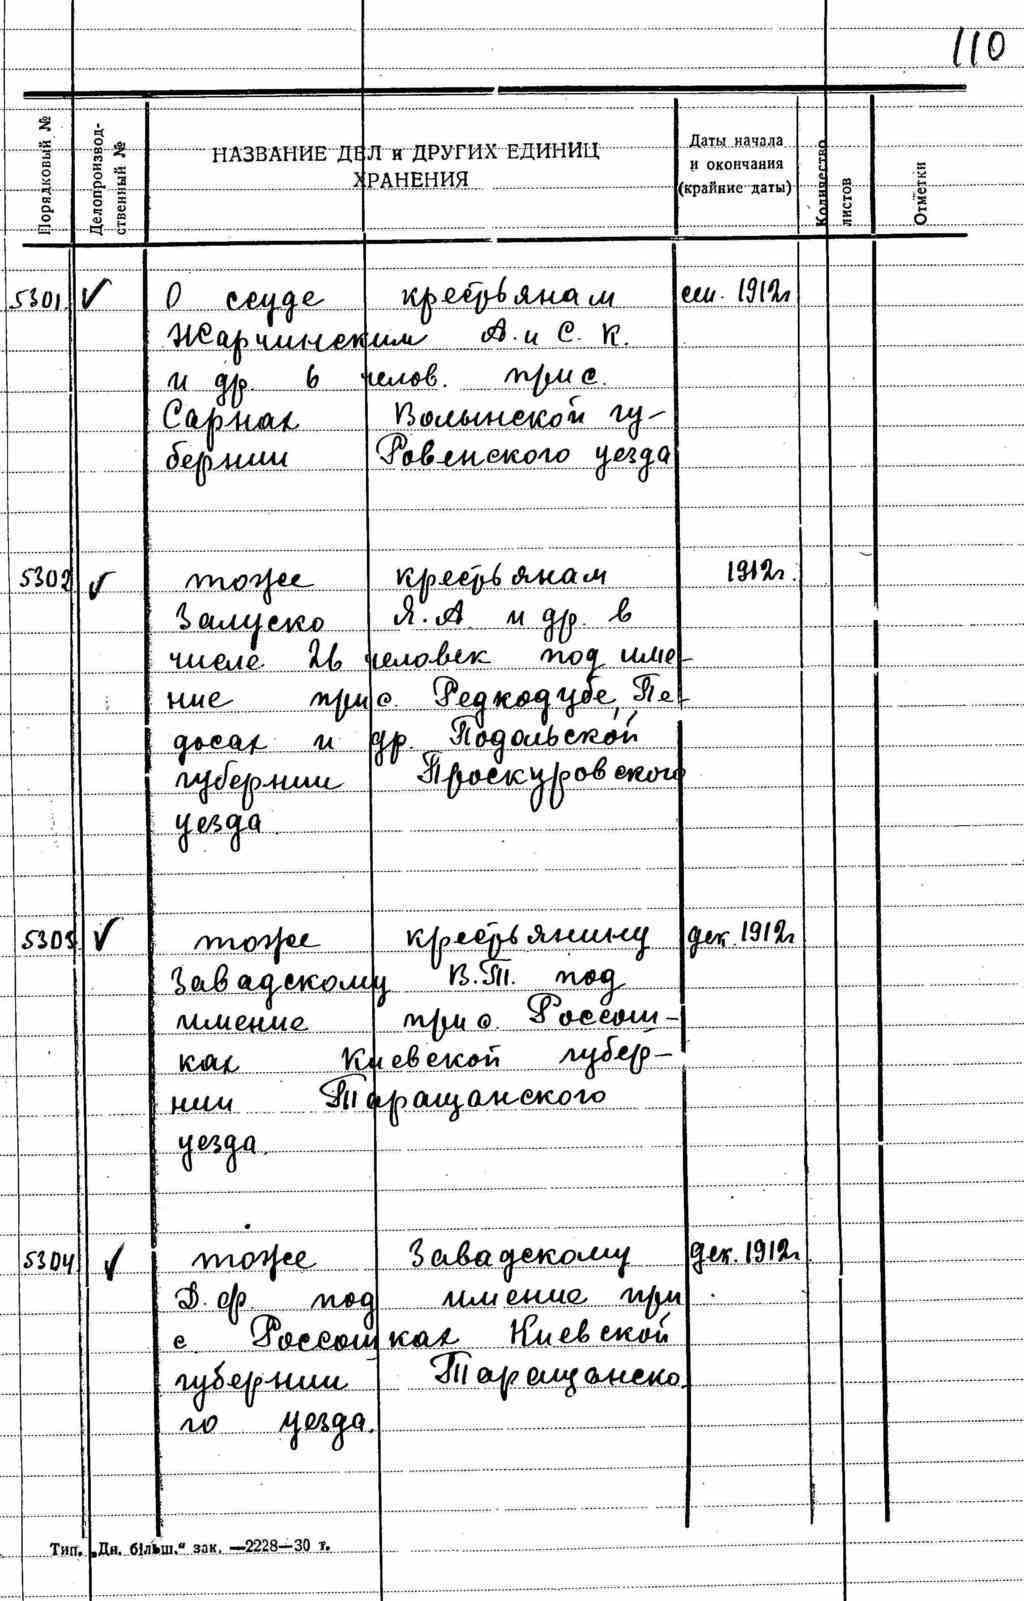 110
Порядковый №
Делопроизвод-
ственный №
НАЗВАНИЕ ДЕЛ и ДРУГИХ ЕДИНИЦ
ХРАНЕНИЯ
Даты начала
и окончания
(крайние даты)
Количество
листов
Отметки
5301 ✓ О ссуде крестьянам 1912г
Жарчинским А. и С. К.
и др. 6 челов. при с.
Сарнах Волынской гу-
бернии Ровенского уезда
5302 ✓ тоже крестьянам 1912г.
Залуско Я. А. и др. в
числе 26 человек под име-
ние при с. Редкодубе, Пе-
досах и др. Подольской
губернии Проскуровского
уезда.
5303 ✓ тоже крестьянину дек. 1912г
Завадскому В. Т. под
имение при с. Россош-
ках Киевской губер-
нии Таращанского
уезда.
5304 ✓ тоже Завадскому дек. 1912г
Д. Ф. под имение при
с. Россошках Киевской
губернии Таращанско
го уезда.
Тип. „Дн. більш.“ зак. —2228—30 т.